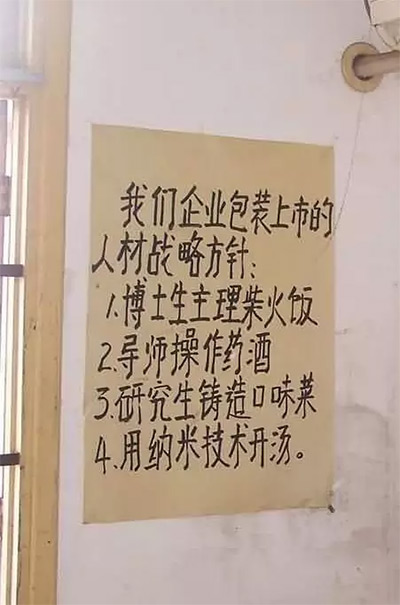 我们企业包装上市的
人材战略方针:
1.博士生主理柴火饭
2.导师操作药酒
3.研究生铸造口味菜
4.用纳米技术开汤。